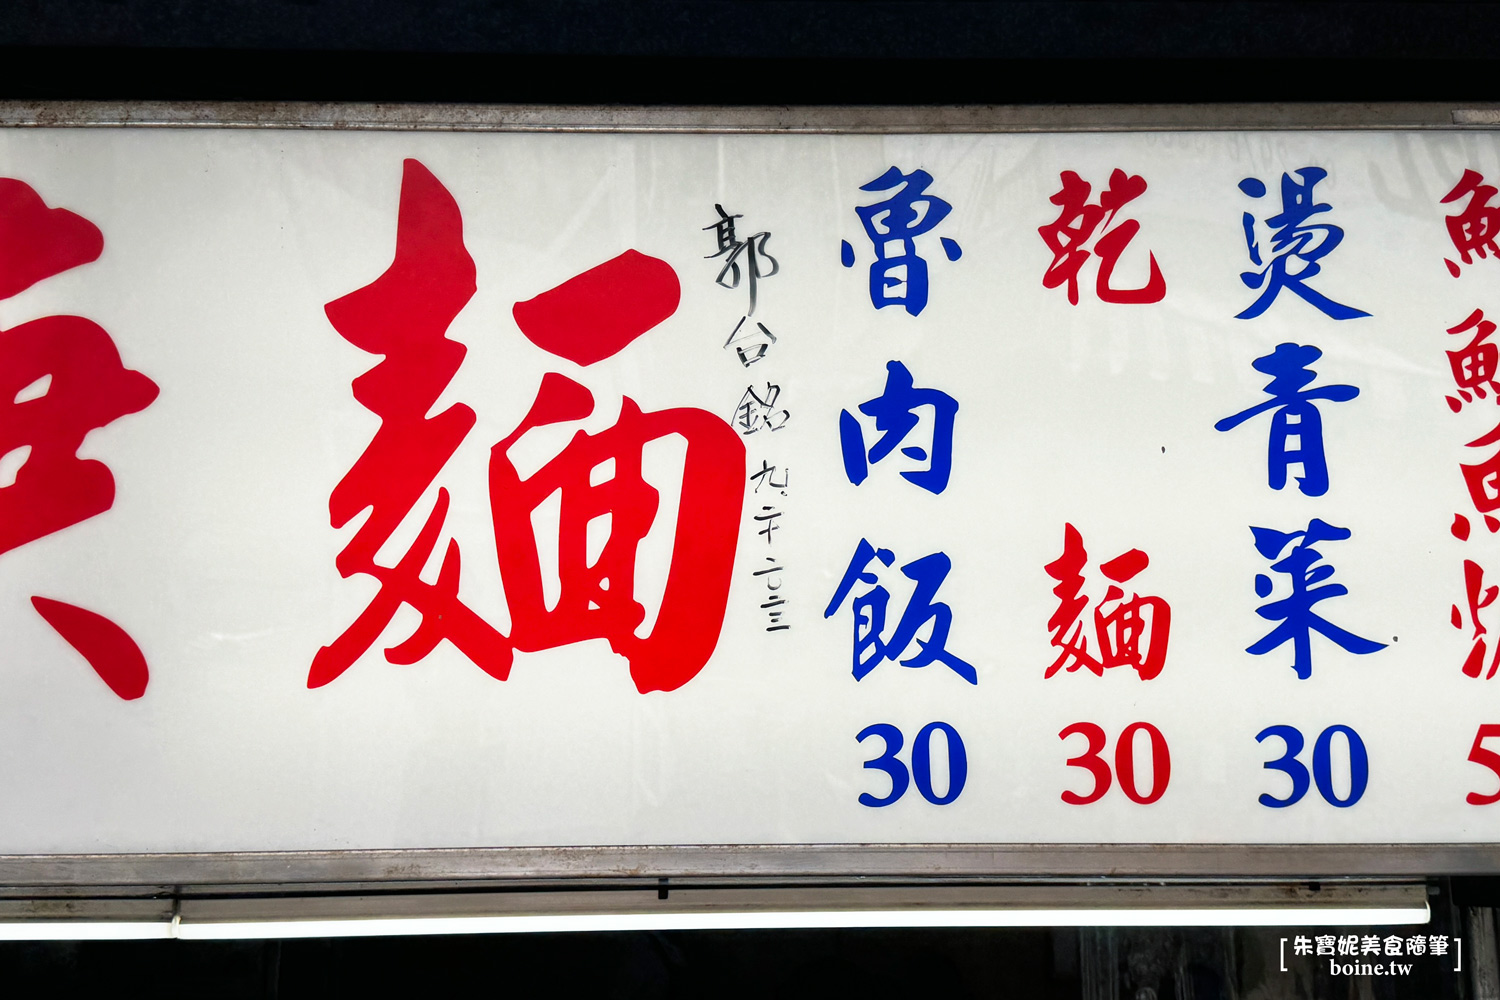 麵
郭台銘 九.二十 二〇二三
魯肉飯
30
乾麵
30
燙青菜
30
朱寶妮美食隨筆
boine.tw